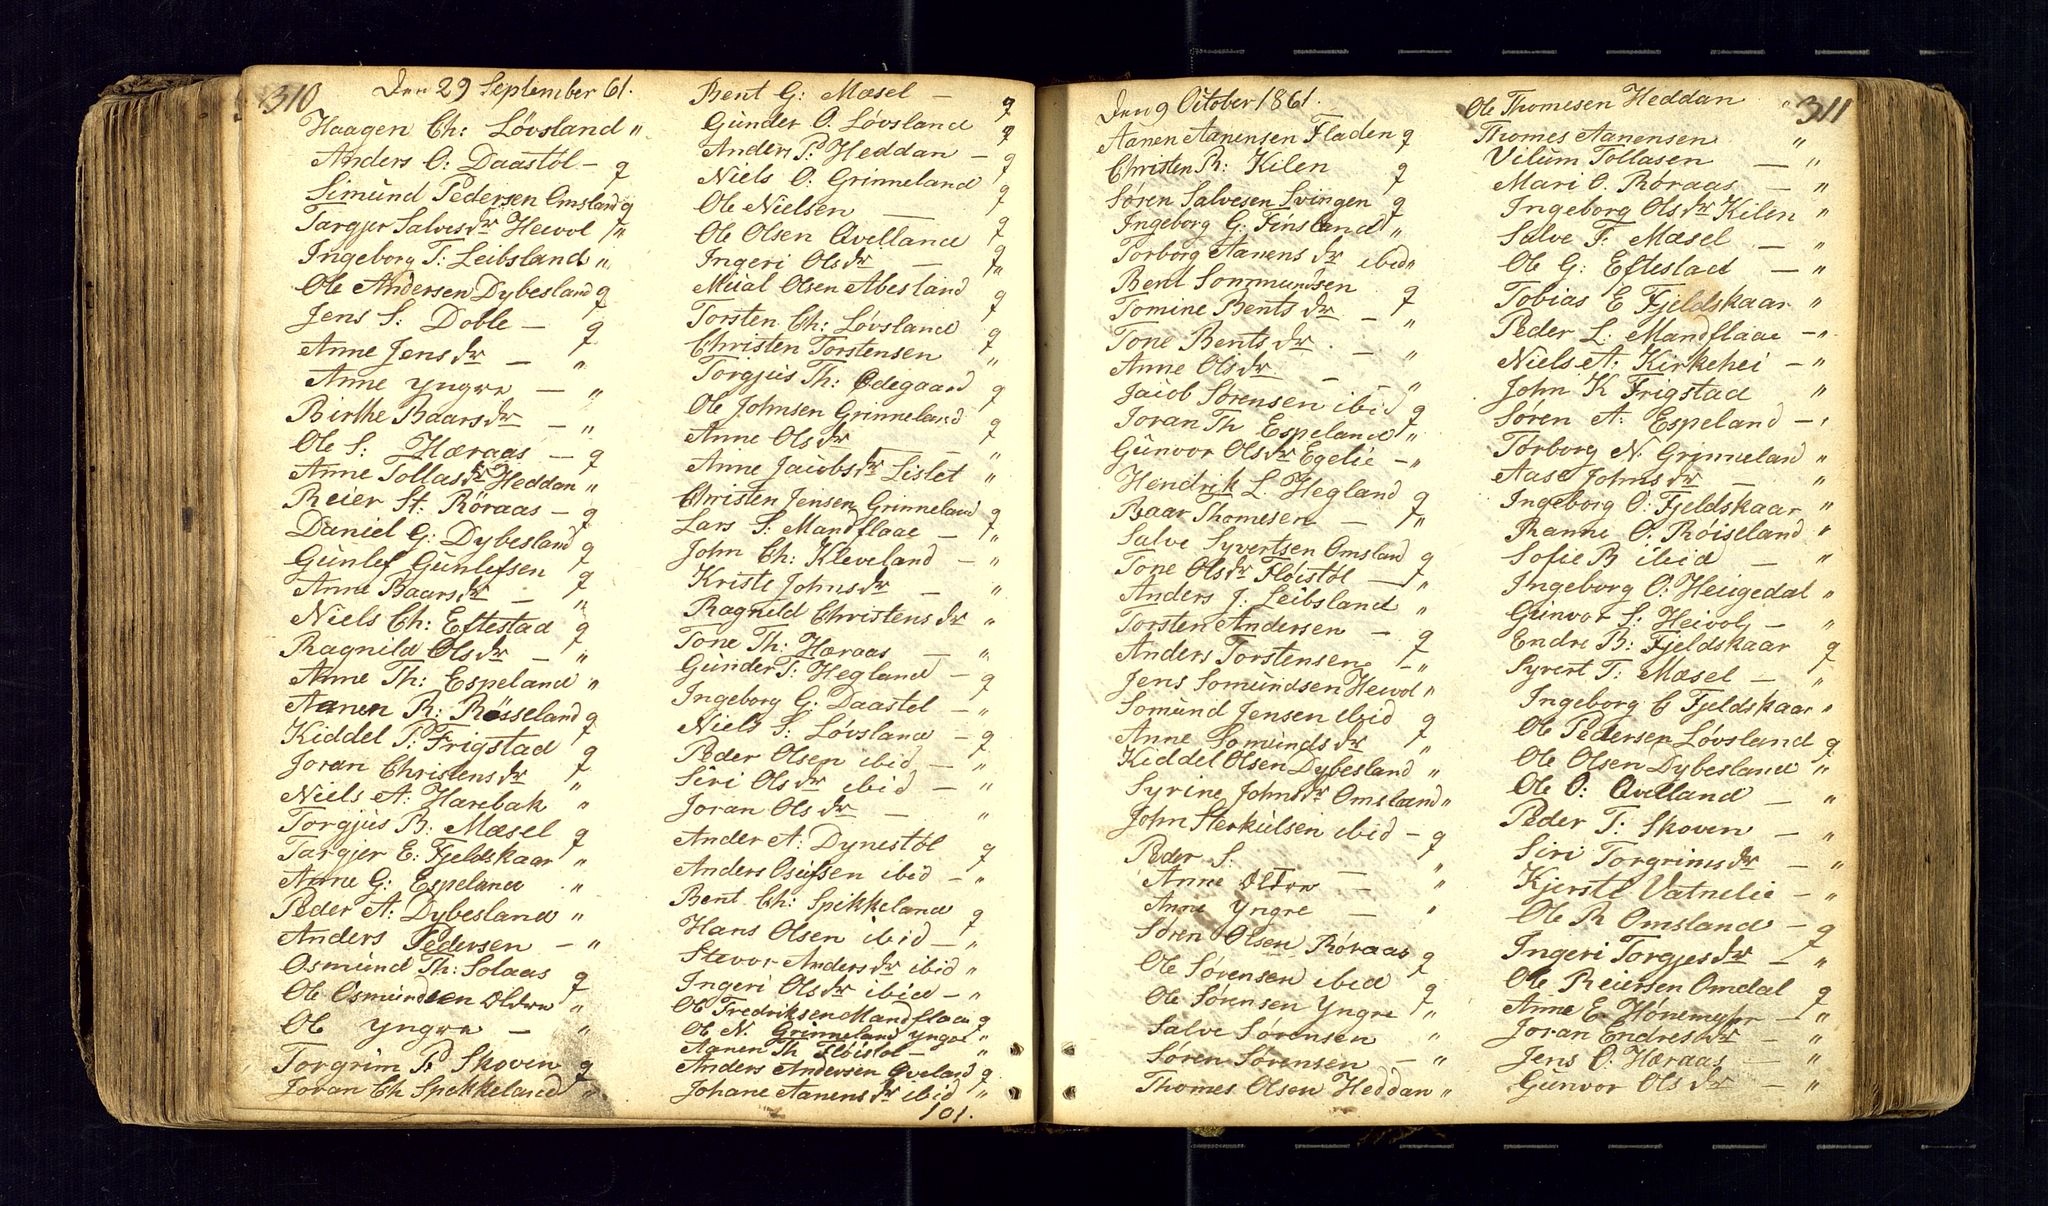 310
Den 29 September 61.
Haagen Ch: Lövsland "
Anders O: Daastöl - g
Simund Pedersen Omsland g
Targjer Salvesdr Heivol "
Ingeborg T: Leibsland "
Ole Andersen Dybesland g
Jens S: Doble - g
Anne Jensdr - "
Anne Yngre - "
Birthe Baarsdr - "
Ole S: Hæraas - g
Anne Tollasdr Heddan "
Reier St. Röraas - g
Daniel G: Dybesland g
Gunlef Gunlefsen g
Anne Baarsdr - "
Niels Ch: Eftestad g
Ragnild Olsdr - "
Anne Th: Espeland "
Aanen R: Röisseland g
Kiddel P: Frigstad g
Joran Christensdr "
Niels A: Harebak "
Torgjus B: Mæsel g
Targjer E: Fjeldskaar "
Anne G: Espeland "
Peder A: Dybesland "
Anders Pedersen - "
Osmund Th: Solaas g
Ole Osmundsen Oldre "
Ole Yngre - "
Torgrim P: Skoven g
Joran Ch Spikkeland "
Bent G: Mæsel - g
Gunder O. Lövsland g
Anders P: Heddan - g
Niels O: Grinneland g
Ole Nielsen - g
Ole Olsen Qvelland g
Ingeri Olsdr - "
Mual Olsen Abesland g
Torsten Ch: Lövsland g
Christen Torstensen "
Torgjus Th: Ödegaard g
Ole Johnsen Grinneland g
Anne Olsdr - "
Anne Jacobsdr Lislet "
Christen Jensen Grinneland g
Lars S: Mandflaae - "
John Ch: Kleveland - "
Kristi Johnsdr - "
Ragnild Christensdr "
Tone Th: Hæraas - "
Gunder T: Hegland - g
Ingeborg G: Daastøl - "
Niels S: Løvsland - g
Peder Olsen ibid - "
Siri Olsdr ibid - "
Joran Olsdr - "
Ander A: Dynestöl g
Anders Osulfsen ibid - "
Bent Ch: Spikkeland g
Hans Olsen ibid - "
Stevor Andersdr ibid "
Ingeri Olsdr ibid - "
Ole Fredriksen Mandflaa g
Ole N. Grinneland Yngre "
Aanen Th Flöistøl - "
Anders Andersen Qveland g
Johane Aanensdr ibid "
101.
311
Den 9 October 1861.
Aanen Aanensen Fladen g
Christen Th: Kilen g
Søren Salvesen Svingen g
Ingeborg G: Finsland "
Torborg Aanensdr ibid "
Bent Sommundsen g
Tomine Bentsdr - "
Tone Bentsdr - "
Anne Olsdr - "
Jacob Sørensen ibid g
Joran Th Espeland "
Gunvor Olsdr Egelie - "
Hendrik L. Hegland g
Baar Thomesen - "
Salve Syvertsen Omsland g
Tone Olsdr Flöistöl - "
Anders J: Leibsland "
Torsten Andersen - g
Anders Torstensen - "
Jens Somundsen Heivol "
Somund Jensen ibid g
Anne Somundsdr "
Kiddel Olsen Dybesland "
Syrine Johnsdr Omsland "
John Herkulsen ibid - g
Peder S. - "
Anne Oldre - "
Anne Yngre - "
Søren Olsen Røraas g
Ole Sørensen ibid g
Ole Sørensen Yngre "
Salve Sørensen "
Søren Sørensen - "
Thomes Olsen Heddan "
Ole Thomesen Heddan "
Thomes Aanensen "
Vilum Tollasen - "
Mari O. Røraas - "
Ingeborg Olsdr Kilen "
Salve F: Mæsel - "
Ole G: Eftestad - "
Tobias E Fjeldskaar "
Peder L. Mandflaae - "
Niels A: Kirkehei - "
John K Frigstad "
Søren A: Espeland - "
Torborg N. Grinneland "
Aase Johnsdr - "
Ingeborg O: Fjeldskaar "
Ranne O. Røiseland "
Sofie B ibid - "
Ingeborg O. Heiigedal "
Gunvor S: Heivol - "
Endre B: Fjeldskaar g
Syvert T: Mæsel - "
Ingeborg C Fjeldskaar "
Ole Pedersen Løvsland g
Ole Olsen Dybesland "
Ole O: Qvelland - "
Peder T: Skoven - "
Siri Torgrimsdr - "
Kjersti Vatnelie - "
Ole R Omsland - g
Ingeri Torgjesdr - "
Ole Reiersen Omdal g
Anne E Hönemyr - "
Joran Endresdr - "
Jens O. Hæraas - "
Gunvor Olsdr - "